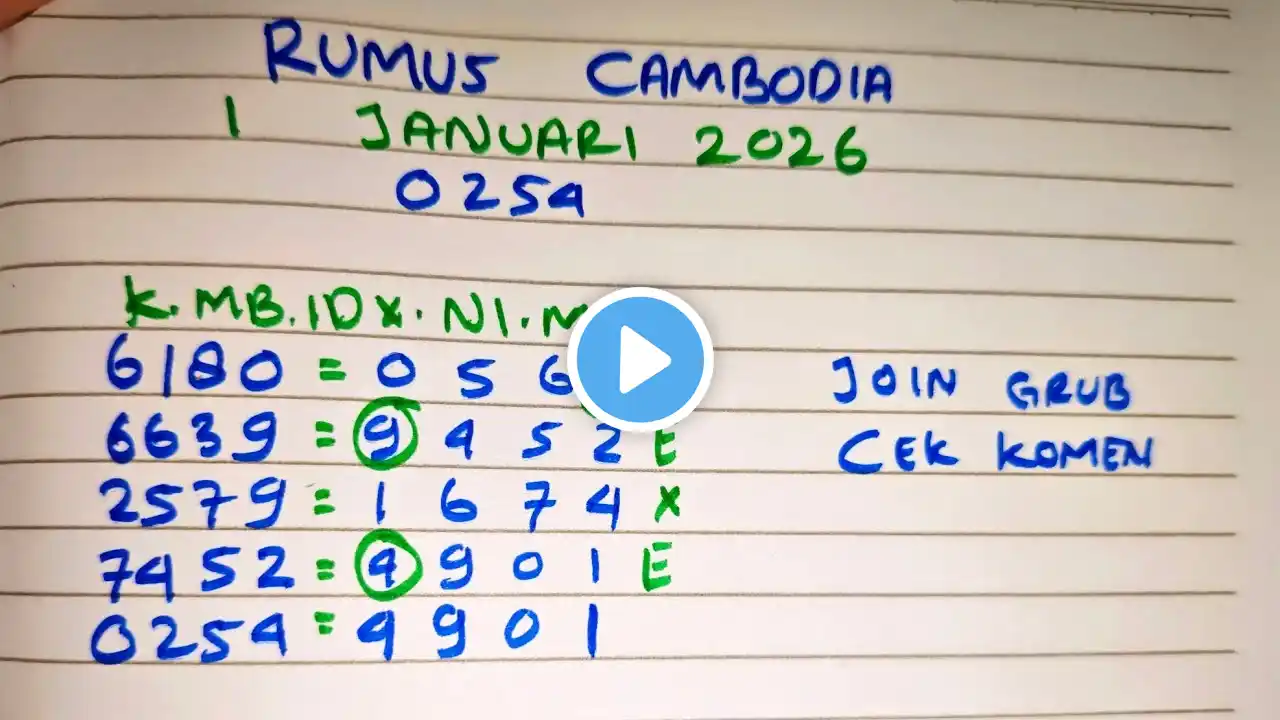 RUMUS CAMBODIA
1 JANUARI 2026
0254
K.MB.IDX.NI.M
6180 = 0 5 6
6639 = 9 4 5 2 E
2579 = 1 6 7 4 X
7452 = 4 9 0 1 E
0254 = 4 9 0 1
JOIN GRUB
CEK KOMEN